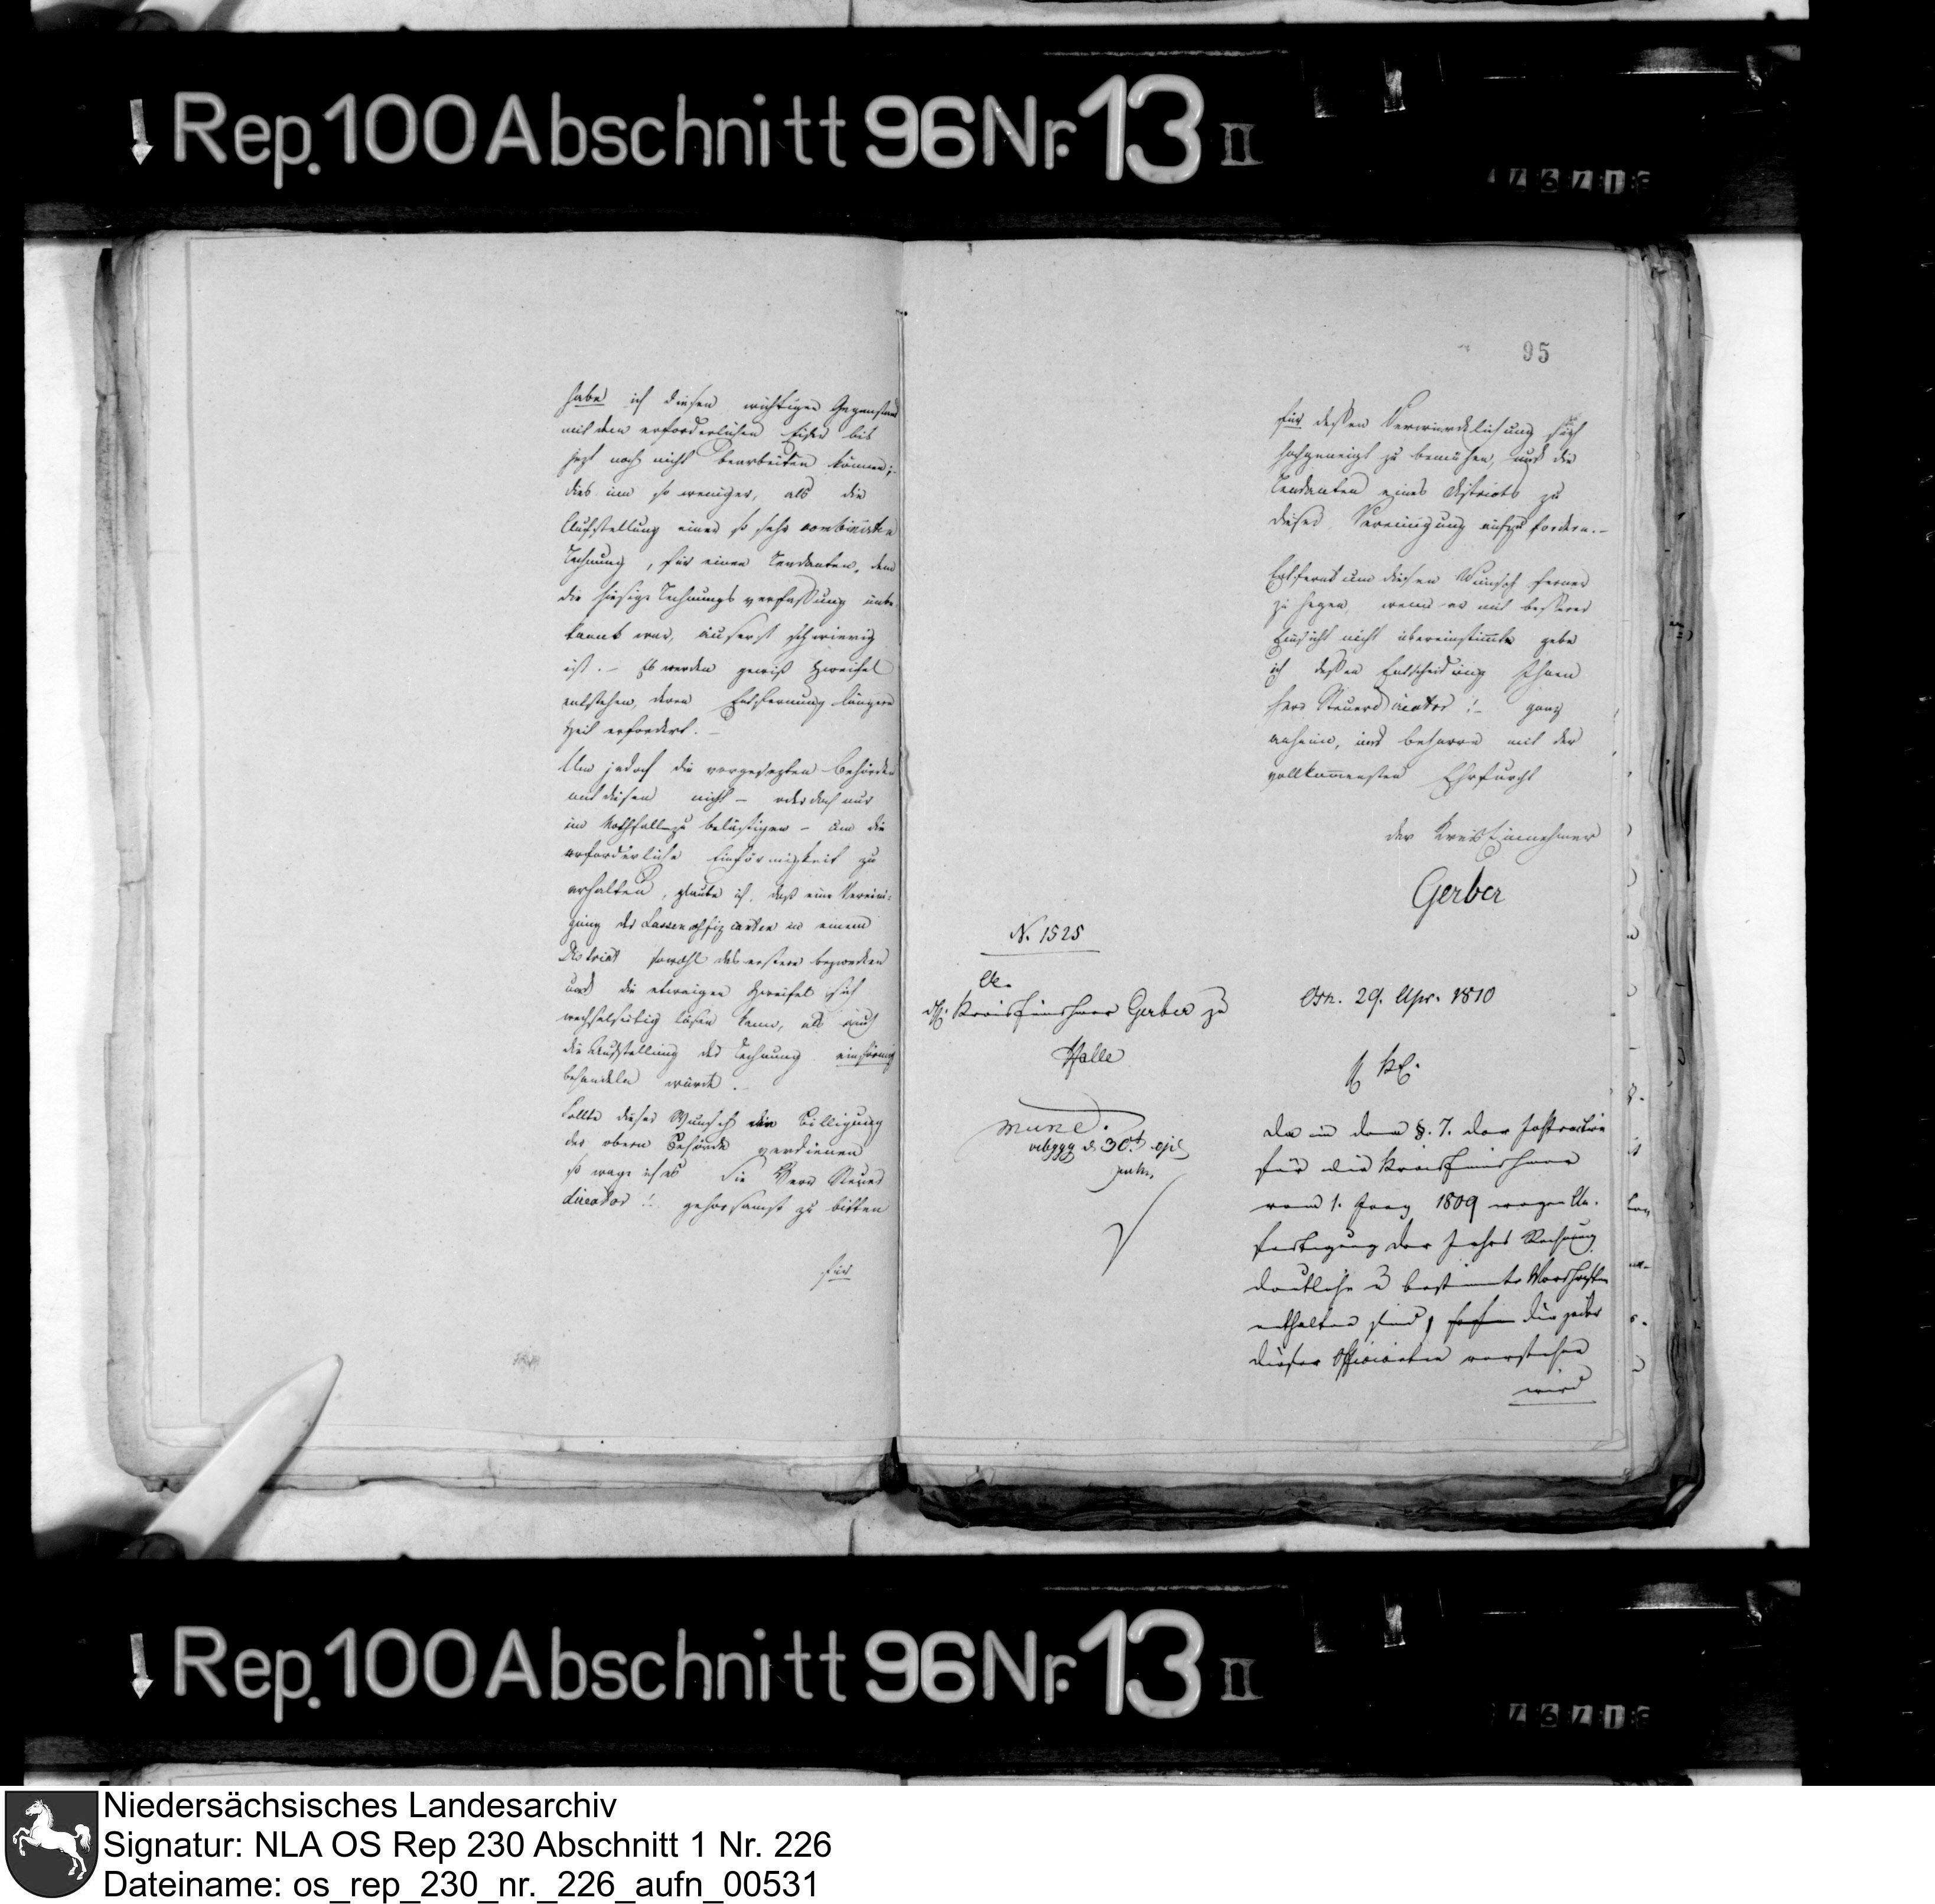 Rep. 100 Abschnitt 96 Nr. 13 II
habe ich diesen wichtigen Gegenstand
mit dem erforderlichen Eifer bis
jezt noch nicht bearbeiten können;
dies um so weniger, als die
Aufstellung einer so sehr combinirten
Rechnung, für einen Rendanten, dem
die hiesige Rechnungsverfassung unbe
kannt war, äuserst schwierig
ist. – Es werden gewiß Zweifel
entstehen, deren Entfernung längere
Zeit erfordert. –
Um jedoch die vorgesezten Behörden
mit diesen nicht – oder doch nur
im Nothfalle zu belästigen – um die
erforderliche Einförmigkeit zu
erhalten, glaube ich, daß eine Vereini-
gung der Cassenoffizianten in einem
District sowohl das erstere bezwecken
und die etwaigen Zweifel sich
wechselseitig lösen kann, als auch
die Aufstellung der Rechnung einförmig
behandeln würde. –
Sollte dieser Wunsch die Billigung
der obern Behörde verdienen
so wage ich es Sie Herr Steuer
director !. gehorsamst zu bitten
für
95
für dessen Verwirklichung sich
hochgeneigt zu bemühen, und die
Rendanten eines Districts zu
dieser Vereinigung aufzufordern. –
Entfernt um diesen Wunsch ferner
zu hegen, wenn er mit besserer
Einsicht nicht übereinstimmte gebe
ich dessen Entscheidung Ihnen
Herr Steuerdirector ! – ganz
anheim, und beharre mit der
vollkommensten Ehrfurcht
der KreisEinnehmer
Gerber
N. 1525
An
Kreiseinnehmer Gerber zu
Halle
mund.
d 30t ej
Osn. 29. Apr. 1810
Da in dem §. 7. der Instruction
für die Kreiseinnehmer
vom 1. 1809 wegen An-
fertigung der Jahrs Rechnung
deutliche u bestimmte Vorschriften
enthalten sind, die jeder
dieser Officianten verstehen
wird
Rep. 100 Abschnitt 96 Nr. 13 II
Niedersächsisches Landesarchiv
Signatur: NLA OS Rep 230 Abschnitt 1 Nr. 226
Dateiname: os_rep_230_nr._226_aufn_00531